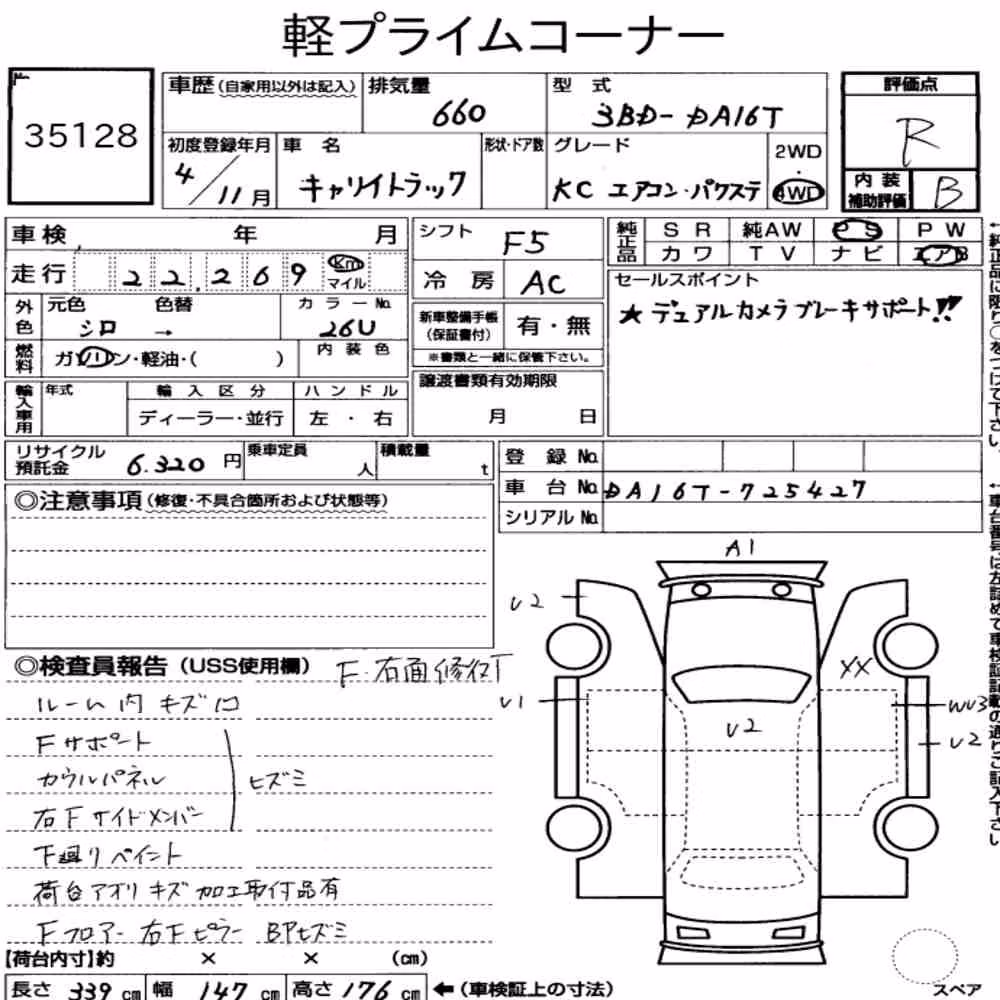 軽プライムコーナー
35128
車歴(自家用以外は記入) 排気量 660 型式 3BD-DA16T 評価点 R
初度登録年月 4/11月 車名 キャリイトラック 形状・ドア数 グレード KC エアコン・パワステ 2WD・4WD 内装補助評価 B
車検 年 月 シフト F5 純正品 SR 純AW PS PW
走行 22,269 Km マイル 冷房 AC カワ TV ナビ エアB
外色 元色 シロ 色替 → カラーNo. 26U 新車整備手帳(保証書付) 有・無 セールスポイント
★デュアルカメラブレーキサポート!!
燃料 ガソリン・軽油・( ) 内装色 ※書類と一緒に保管下さい。
輸入車用 年式 輸入区分 ハンドル 譲渡書類有効期限
ディーラー・並行 左・右 月 日
リサイクル預託金 6.320円 乗車定員 人 積載量 t 登録No.
車台No. DA16T-725427
シリアルNo.
◎注意事項(修復・不具合箇所および状態等)
A1
U2
◎検査員報告(USS使用欄) F.右面修復
XX
ルーム内キズ
U1
WU3
Fサポート
U2
U2
カウルパネル ヒズミ
右Fサイドメンバー
下廻りペイント
荷台アオリキズ加工取付品有
Fフロアー右Fピラー BPヒズミ
【荷台内寸】約 × × (cm)
長さ 339 cm 幅 147 cm 高さ 176 cm ←(車検証上の寸法)
スペア
←純正品に限り○をつけて下さい。
←車台番号は左詰めで車検証記載の通りご記入下さい